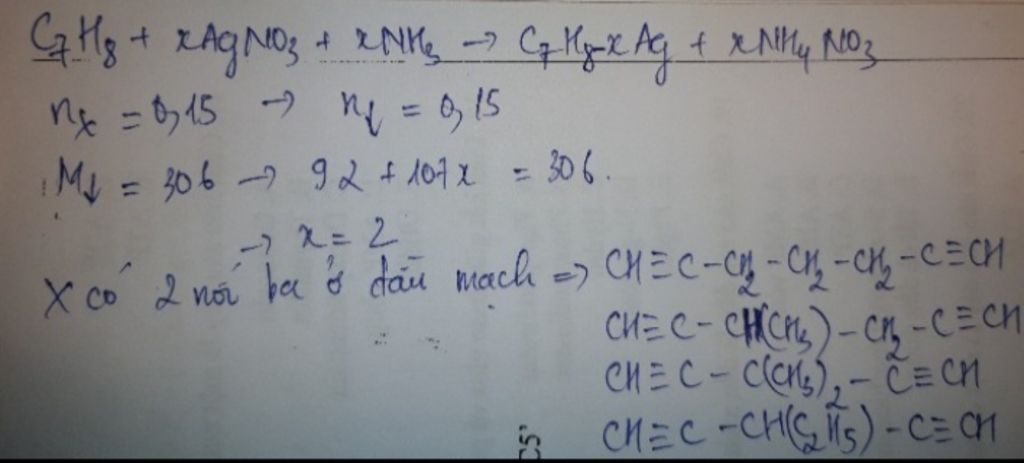 C₇H₈ + xAgNO₃ + xNH₃ → C₇H₈₋ₓAg + xNH₄NO₃
nₓ = 0,15 → n↓ = 0,15
M↓ = 306 → 92 + 107x = 306.
→ x = 2
X có 2 nối ba ở đầu mạch => CH≡C-CH₂-CH₂-CH₂-C≡CH
CH≡C-CH(CH₃)-CH₂-C≡CH
CH≡C-C(CH₃)₂-C≡CH
CH≡C-CH(C₂H₅)-C≡CH